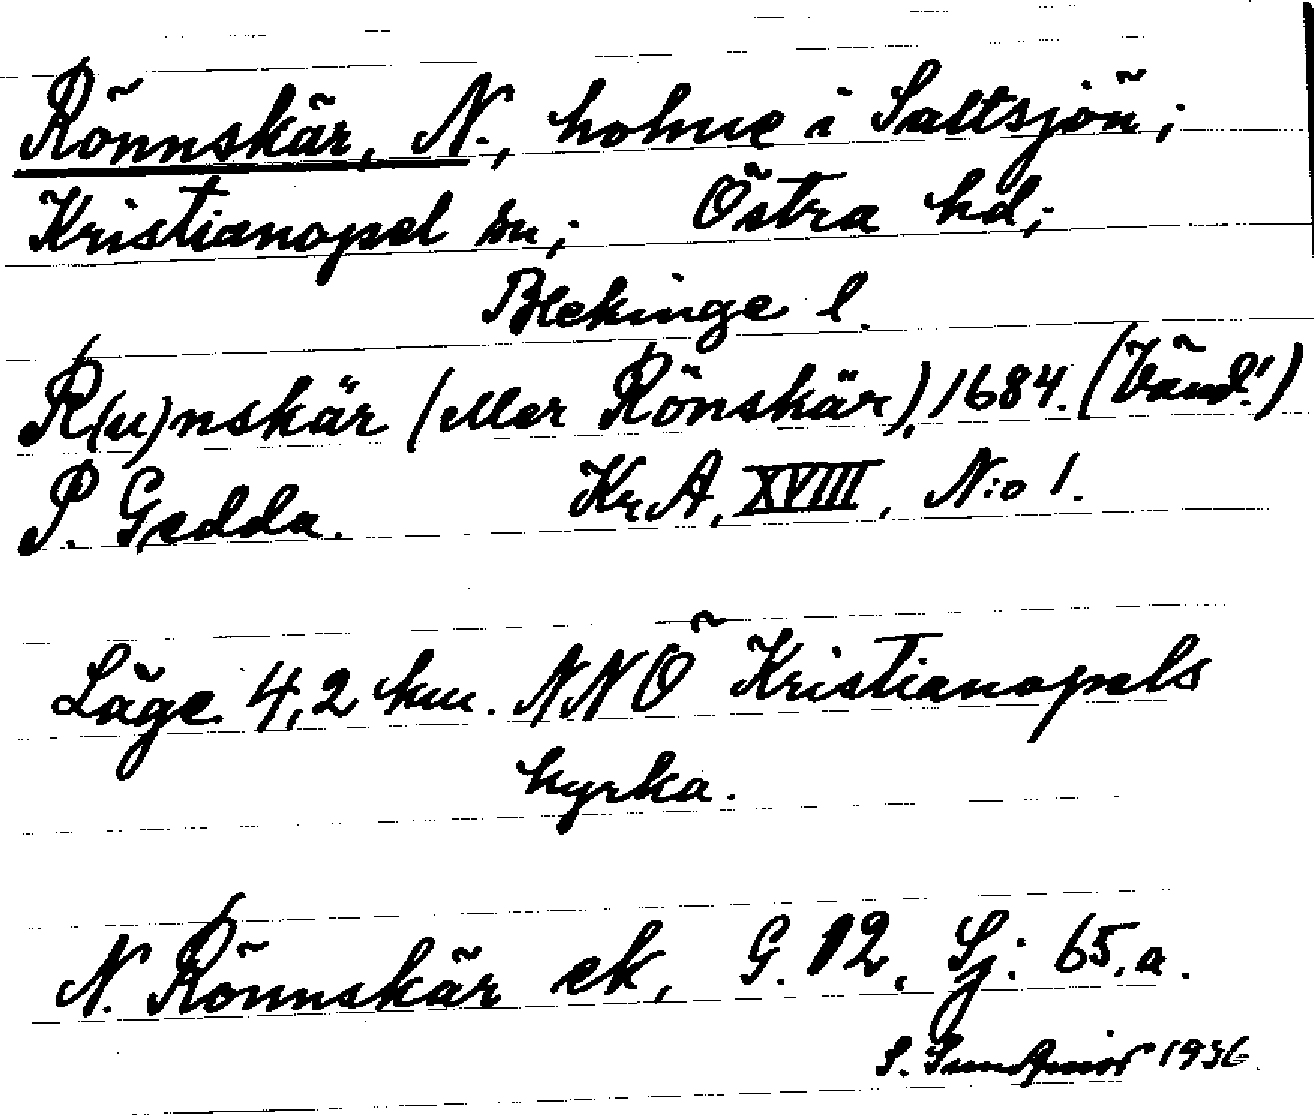 Rönnskär, N., holme i Saltsjön;
Kristianopel sn; Östra hd;
Blekinge l.
R(u)nskär (eller Rönskär), 1684. (Vänd!)
P. Gedda. Kr.A, XVIII, N:o 1.
Läge 4,2 km. NNÖ Kristianopels
kyrka.
N. Rönnskär ek, G. 12, Sj: 65,a.
S. 1936